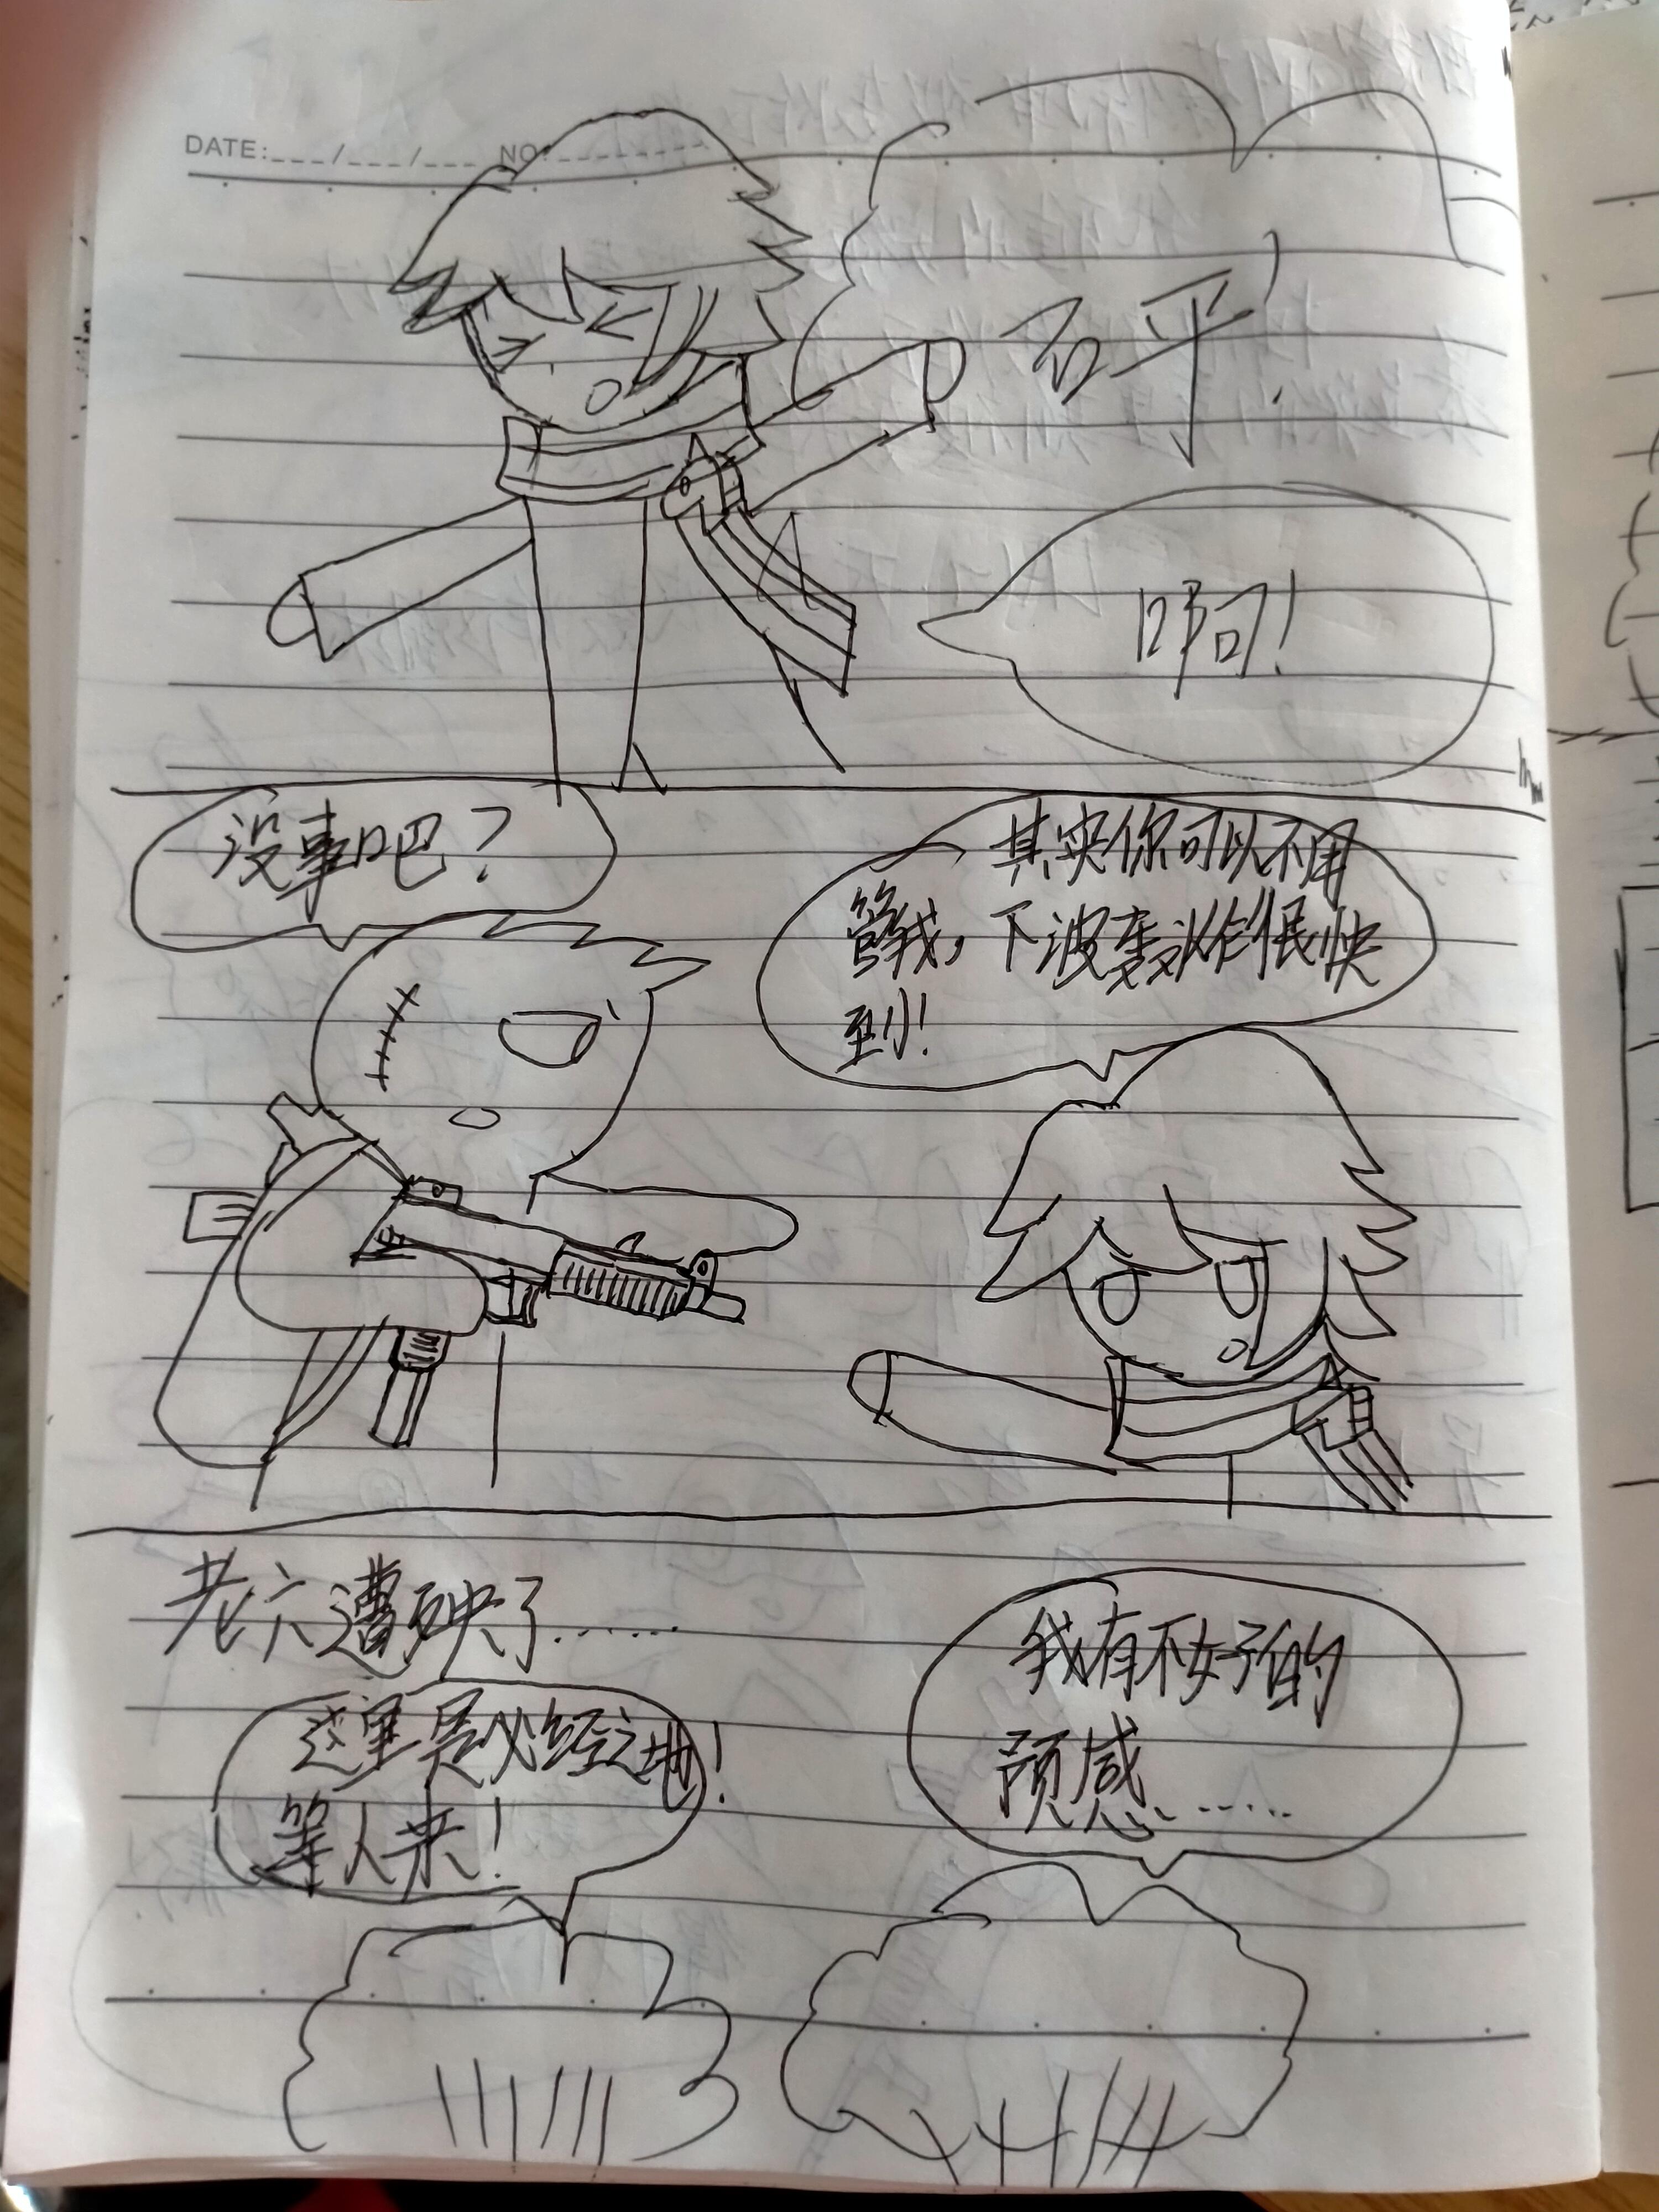 DATE:___/___/___ NO:________
砰!
啊!
没事吧?
其实你可以不用
管我,下波轰炸很快
到!
老六遭殃了......
这里是必经之地!
等人来!
我有不好的
预感......